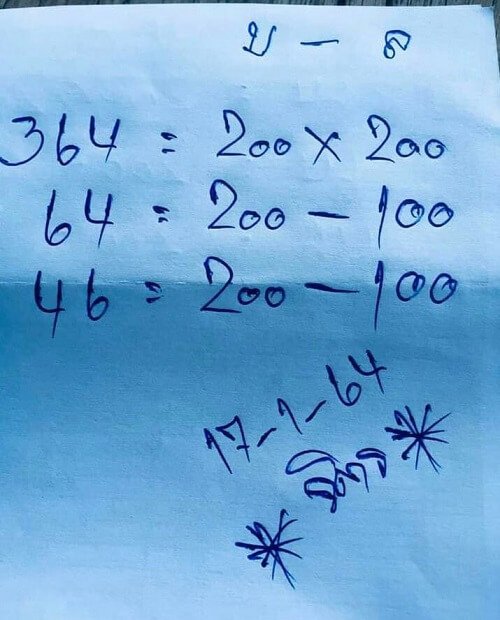 บ - ล
364 = 200 x 200
64 = 200 - 100
46 = 200 - 100
17-1-64